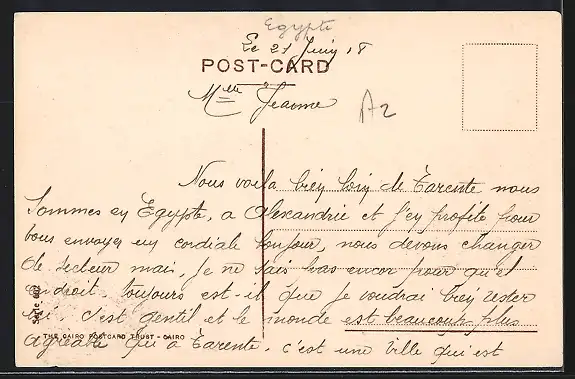 Egypte
Le 21 Juin 18
POST-CARD
Melle Jeanne
A2
Nous voila bien loin de Tarente nous
sommes en Egypte, a Alexandrie et j'en profite pour
vous envoyer un cordiale bonjour, nous devons changer
de secteur mais, je ne sais pas encor pour quel
endroit. toujours est-il que je voudrai bien rester
ici, c'est gentil et le monde est beaucoup plus
agreable qu'a Tarente, c'est une ville qui est
Serie 602
THE CAIRO POSTCARD TRUST - CAIRO